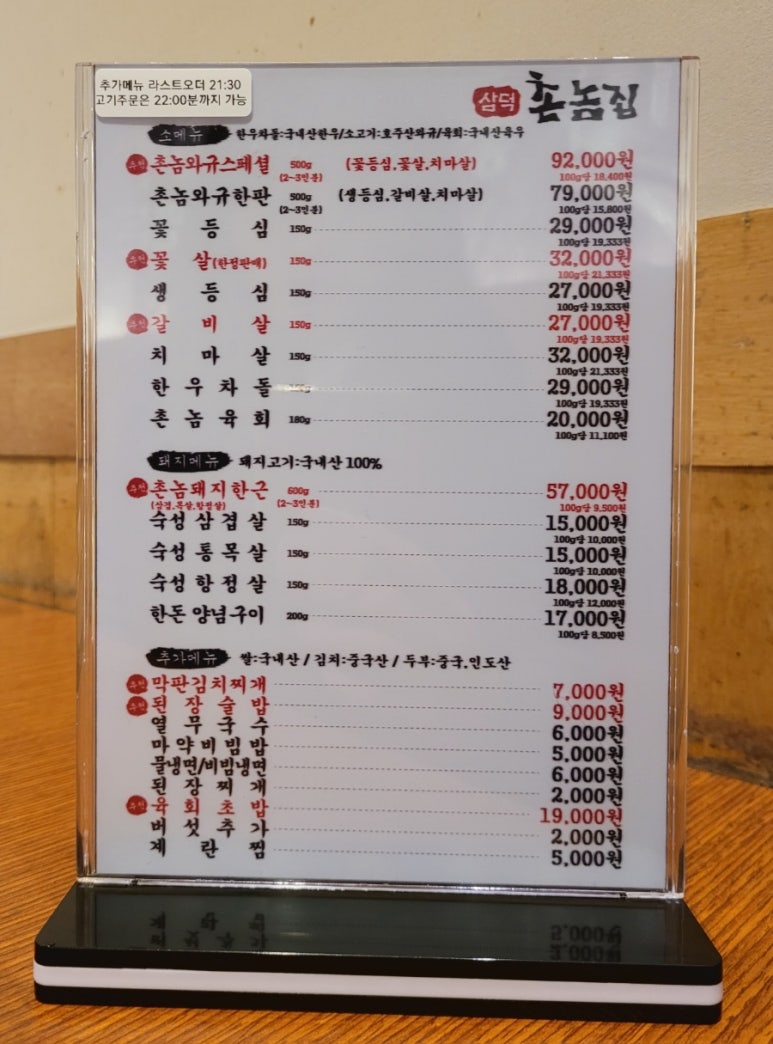 추가메뉴 라스트오더 21:30
고기주문은 22:00분까지 가능
삼덕 촌놈집
소메뉴 한우차돌:국내산한우/소고기:호주산와규/육회:국내산육우
추천 촌놈와규스페셜 500g (꽃등심.꽃살.치마살) 92,000원
(2~3인분) 100g당 18,400원
촌놈와규한판 500g (생등심.갈비살.치마살) 79,000원
(2~3인분) 100g당 15,800원
꽃등심 150g 29,000원
100g당 19,333원
추천 꽃살(한정판매) 150g 32,000원
100g당 21,333원
생등심 150g 27,000원
100g당 19,333원
추천 갈비살 150g 27,000원
100g당 19,333원
치마살 150g 32,000원
100g당 21,333원
한우차돌 29,000원
100g당 19,333원
촌놈육회 180g 20,000원
100g당 11,100원
돼지메뉴 돼지고기:국내산 100%
추천 촌놈돼지한근 600g 57,000원
(삼겹.목살.항정살) (2~3인분) 100g당 9,500원
숙성삼겹살 150g 15,000원
100g당 10,000원
숙성통목살 150g 15,000원
100g당 10,000원
숙성항정살 150g 18,000원
100g당 12,000원
한돈양념구이 200g 17,000원
100g당 8,500원
추가메뉴 쌀:국내산 / 김치:중국산 / 두부:중국.인도산
추천 막판김치찌개 7,000원
추천 된장술밥 9,000원
열무국수 6,000원
마약비빔밥 5,000원
물냉면/비빔냉면 6,000원
된장찌개 2,000원
추천 육회초밥 19,000원
버섯추가 2,000원
계란찜 5,000원